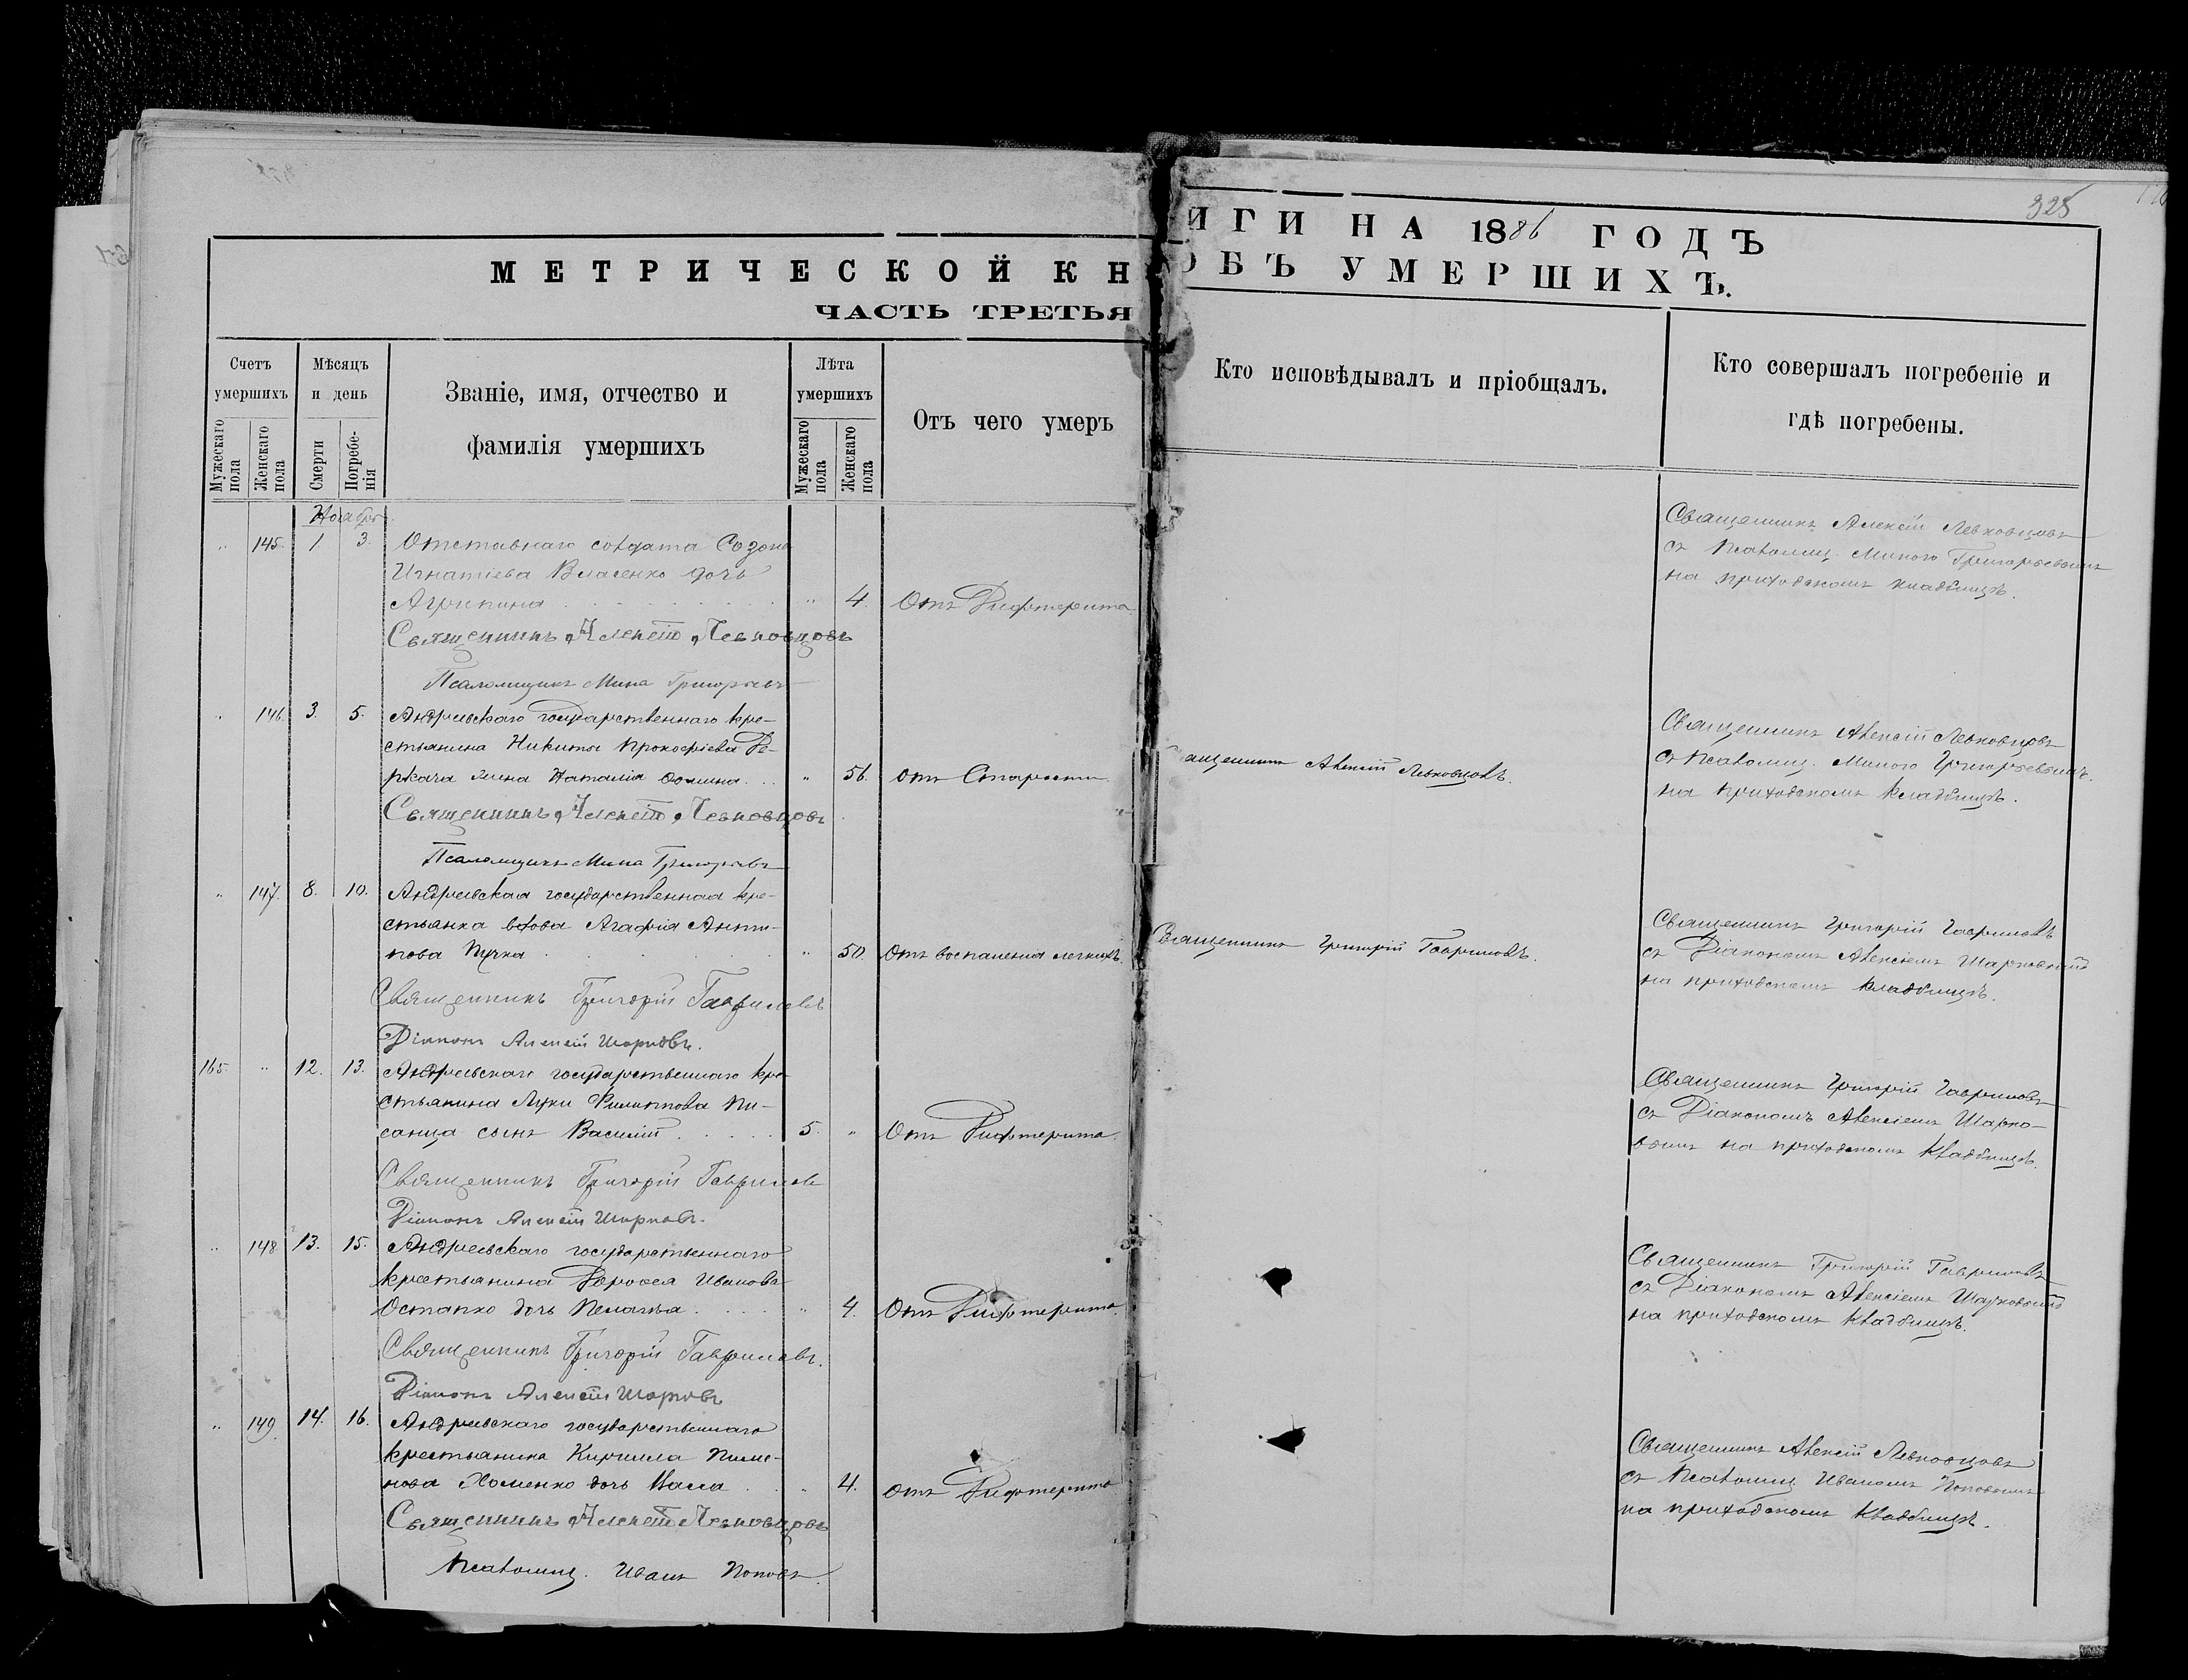 325
МЕТРИЧЕСКОЙ КН
ИГИ НА 1886 ГОДЪ
ЧАСТЬ ТРЕТЬЯ
ОБЪ УМЕРШИХЪ.
Счетъ умершихъ
Мужескаго пола
Женскаго пола
Мѣсяцъ и день
Смерти
Погребенія
Званіе, имя, отчество и
фамилія умершихъ
Лѣта умершихъ
Мужескаго пола
Женскаго пола
Отъ чего умеръ
Кто исповѣдывалъ и пріобщалъ.
Кто совершалъ погребеніе и
гдѣ погребены.
Ноабря
" 145. 1 3. Отставнаго солдата Созона
Игнатіева Власенко дочь
Агрипина " 4. Отъ Дифтерита.
Священникъ Алексій Левковцовъ
съ Псаломщ. Миною Григорьевымъ
на приходскомъ кладбищѣ.
Священникъ Алексій Левковцовъ
Псаломщикъ Мина Григорьевъ
" 146. 3. 5. Андреевскаго государственнаго кре-
стьянина Никиты Прокофіева Де-
ркача жена Наталія Фомина " 56. отъ Старости
ащенникъ Алексій Левковцовъ.
Священникъ Алексій Левковцовъ
съ Псаломщ. Миною Григорьевымъ.
на приходскомъ кладбищѣ.
Священникъ Алексій Левковцовъ
Псаломщикъ Мина Григорьевъ
" 147. 8. 10. Андреевская государственная кре-
стьянка вдова Агафія Анти-
пова " 50. Отъ воспаленія легкихъ.
Священникъ Григорій Гавриловъ.
Священникъ Григорій Гавриловъ
съ Діакономъ Алексіемъ
на приходскомъ кладбищѣ.
Священникъ Григорій Гавриловъ
Діаконъ Алексій Шарковъ.
165. " 12. 13. Андреевскаго государственнаго кре-
стьянина Луки Филиппова Пи-
санца сынъ Василій 5. " Отъ Дифтерита.
Священникъ Григорій Гавриловъ
съ Діакономъ Алексіемъ Шарко-
вымъ на приходскомъ кладбищѣ.
Священникъ Григорій Гавриловъ
Діаконъ Алексій Шарковъ.
" 148. 13. 15. Андреевскаго государственнаго
крестьянина Дорофея Иванова
Остапко дочь Пелагѣя " 4. Отъ Дифтерита.
Священникъ Григорій Гавриловъ
съ Діакономъ Алексіемъ
на приходскомъ кладбищѣ.
Священникъ Григорій Гавриловъ.
Діаконъ Алексій Шарковъ
" 149. 14. 16. Андреевскаго государственнаго
крестьянина Кирилла Пиме-
нова Хоменко дочь Васса " 4. отъ Дифтерита
Священникъ Алексій Левковцовъ
съ Псаломщ. Иваномъ Поповымъ
на приходскомъ кладбищѣ.
Священникъ Алексій Левковцовъ
Псаломщ. Иванъ Поповъ.